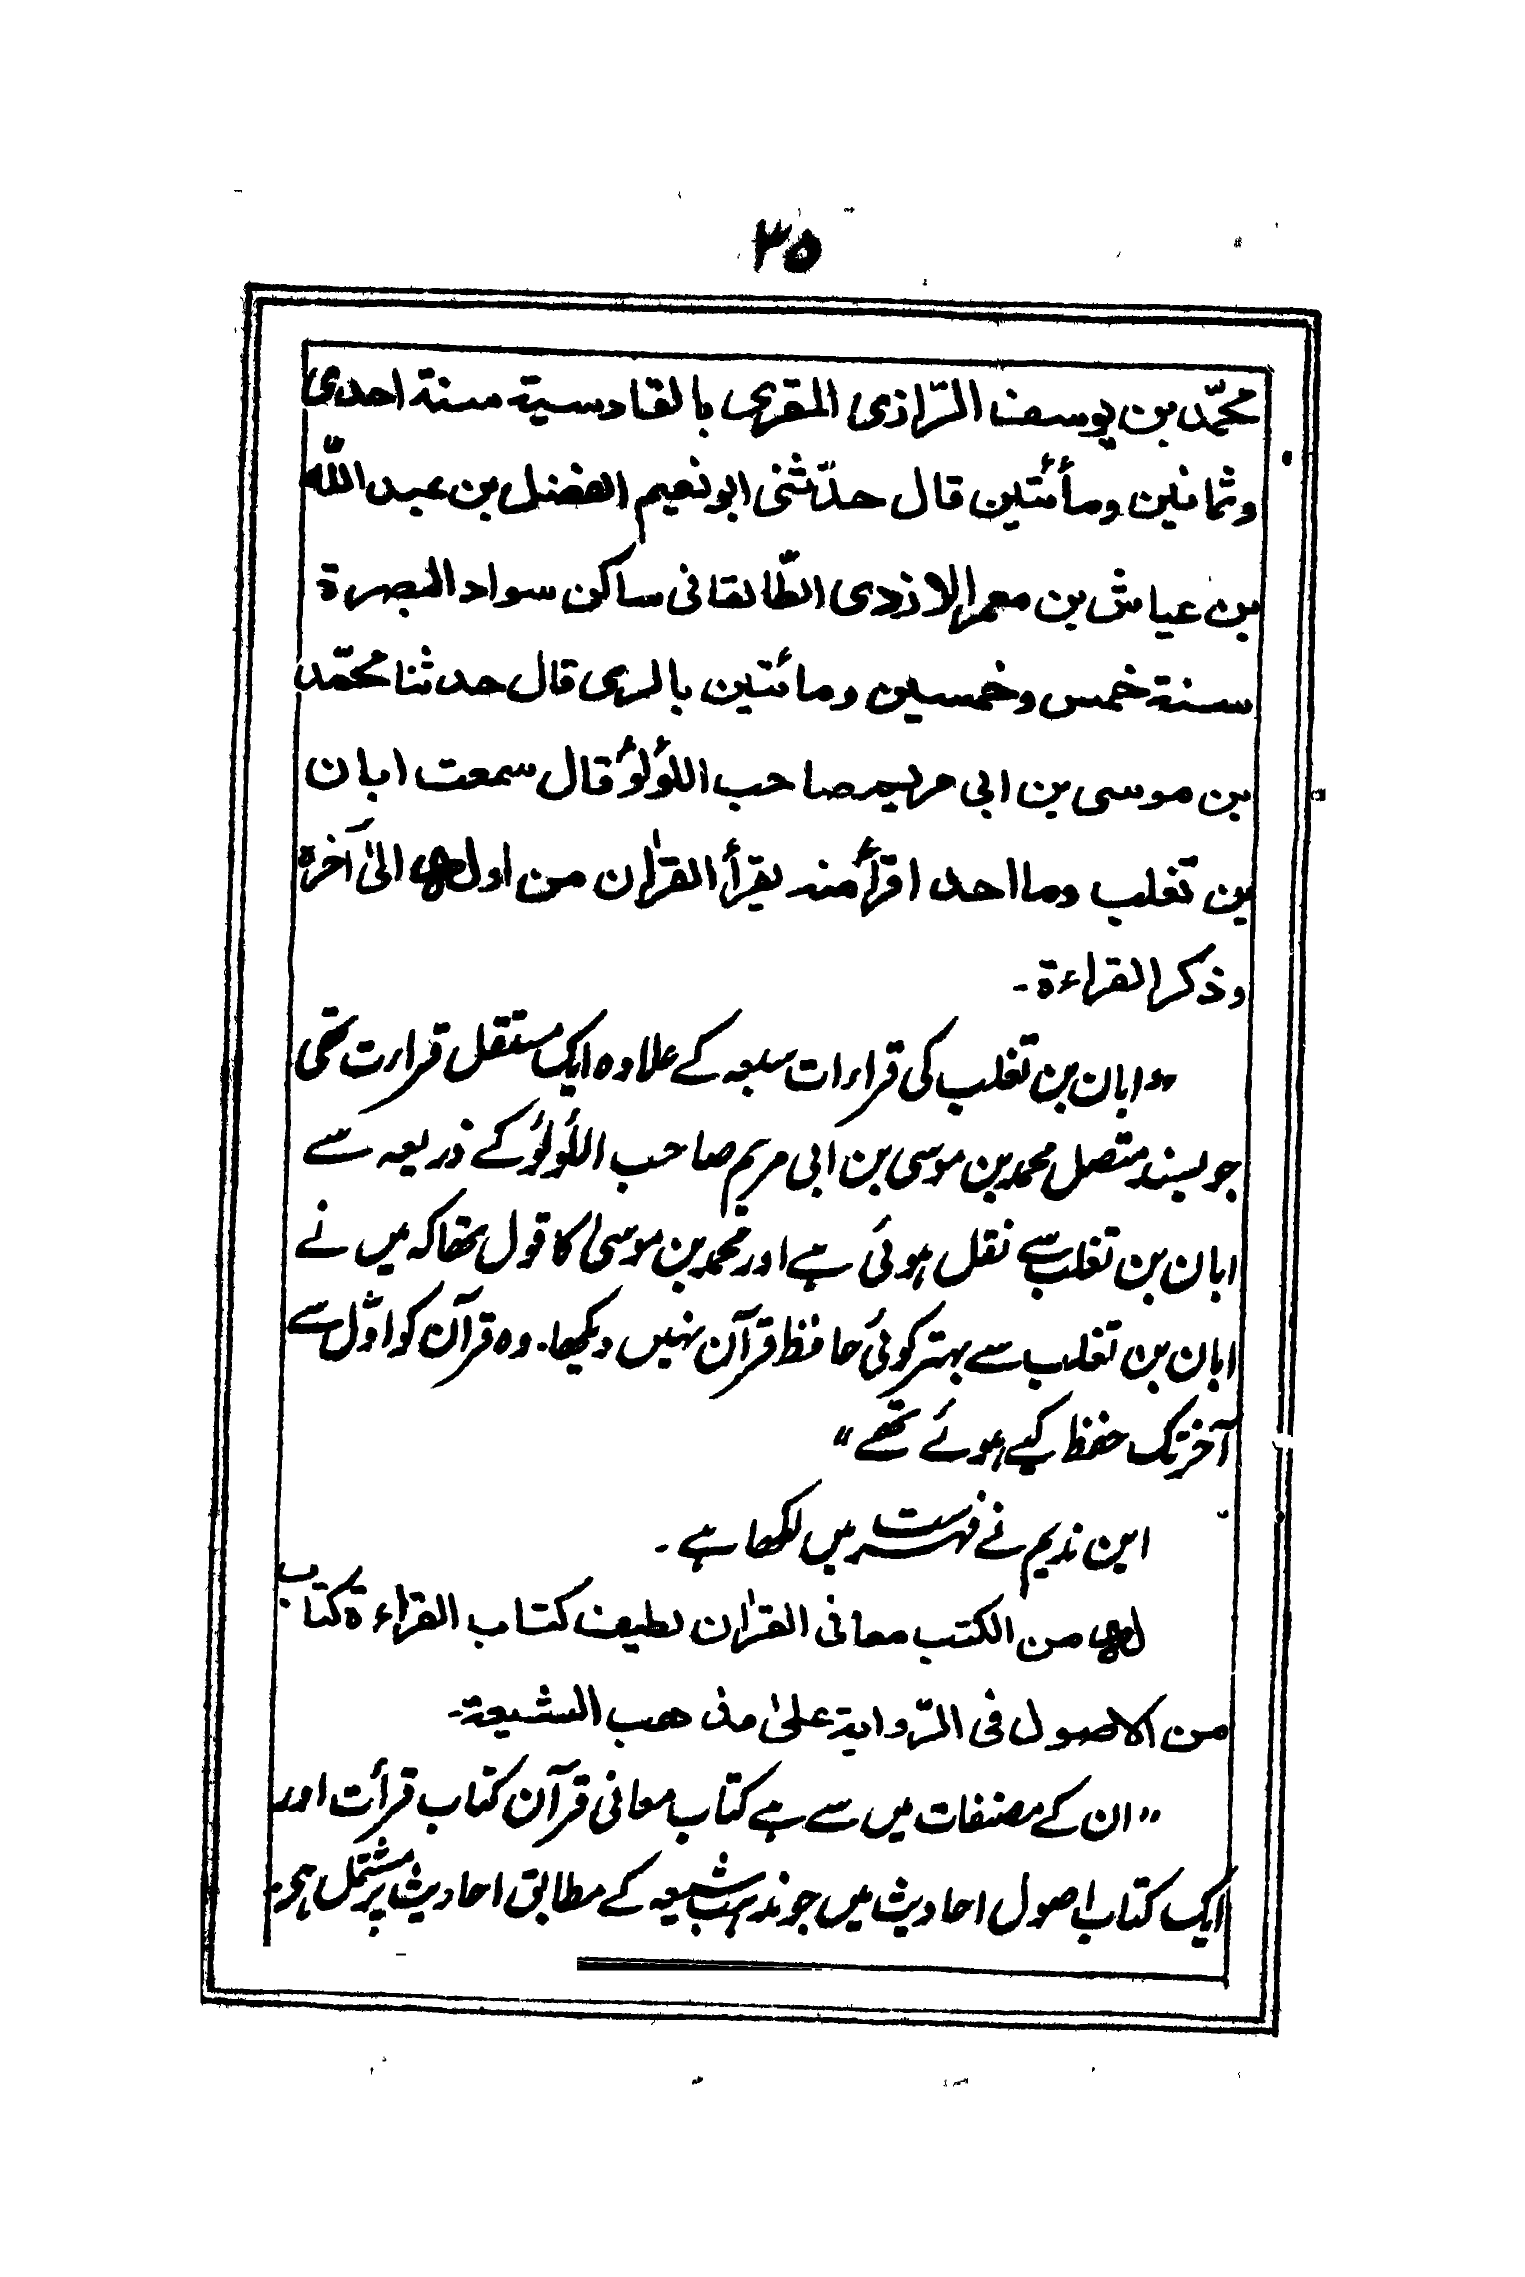 ۳۵
محمّد بن يوسف الرّازى المقرى بالقادسية سنة احدى
وثمانين ومأئتين قال حدّثنى ابو نعيم الفضل بن عبد اللّه
بن عياش بن معمر الازدى الطّالقانى ساكن سواد البصرة
سنة خمس وخمسين ومائتين بالرى قال حدثنا محمّد
بن موسى بن ابى مريم صاحب اللؤلؤ قال سمعت ابان
بن تغلب وما احد اقرأ منه يقرأ القراٰن من اوله الىٰ آخره
وذكر القراءة۔
”ابان بن تغلب کی قراءات سبعہ کے علاوہ ایک مستقل قراءت تھی
جو بسند متصل محمد بن موسی بن ابی مریم صاحب اللؤلؤ کے ذریعہ سے
ابان بن تغلب سے نقل ہوئی ہے اور محمد بن موسیٰ کا قول تھا کہ میں نے
ابان بن تغلب سے بہتر کوئی حافظ قرآن نہیں دیکھا۔ وہ قرآن کو اوّل سے
آخر تک حفظ کیے ہوئے تھے“
ابن ندیم نے فہرست میں لکھا ہے۔
له من الكتب معانى القراٰن لطيف كتاب القراءة كتاب
من الاصول فى الرّواية علىٰ مذهب الشيعة۔
”ان کے مصنفات میں سے ہے کتاب معانی قرآن کتاب قرأت اور
ایک کتاب اصول احادیث میں جو مذہب شیعہ کے مطابق احادیث پر مشتمل ہے۔